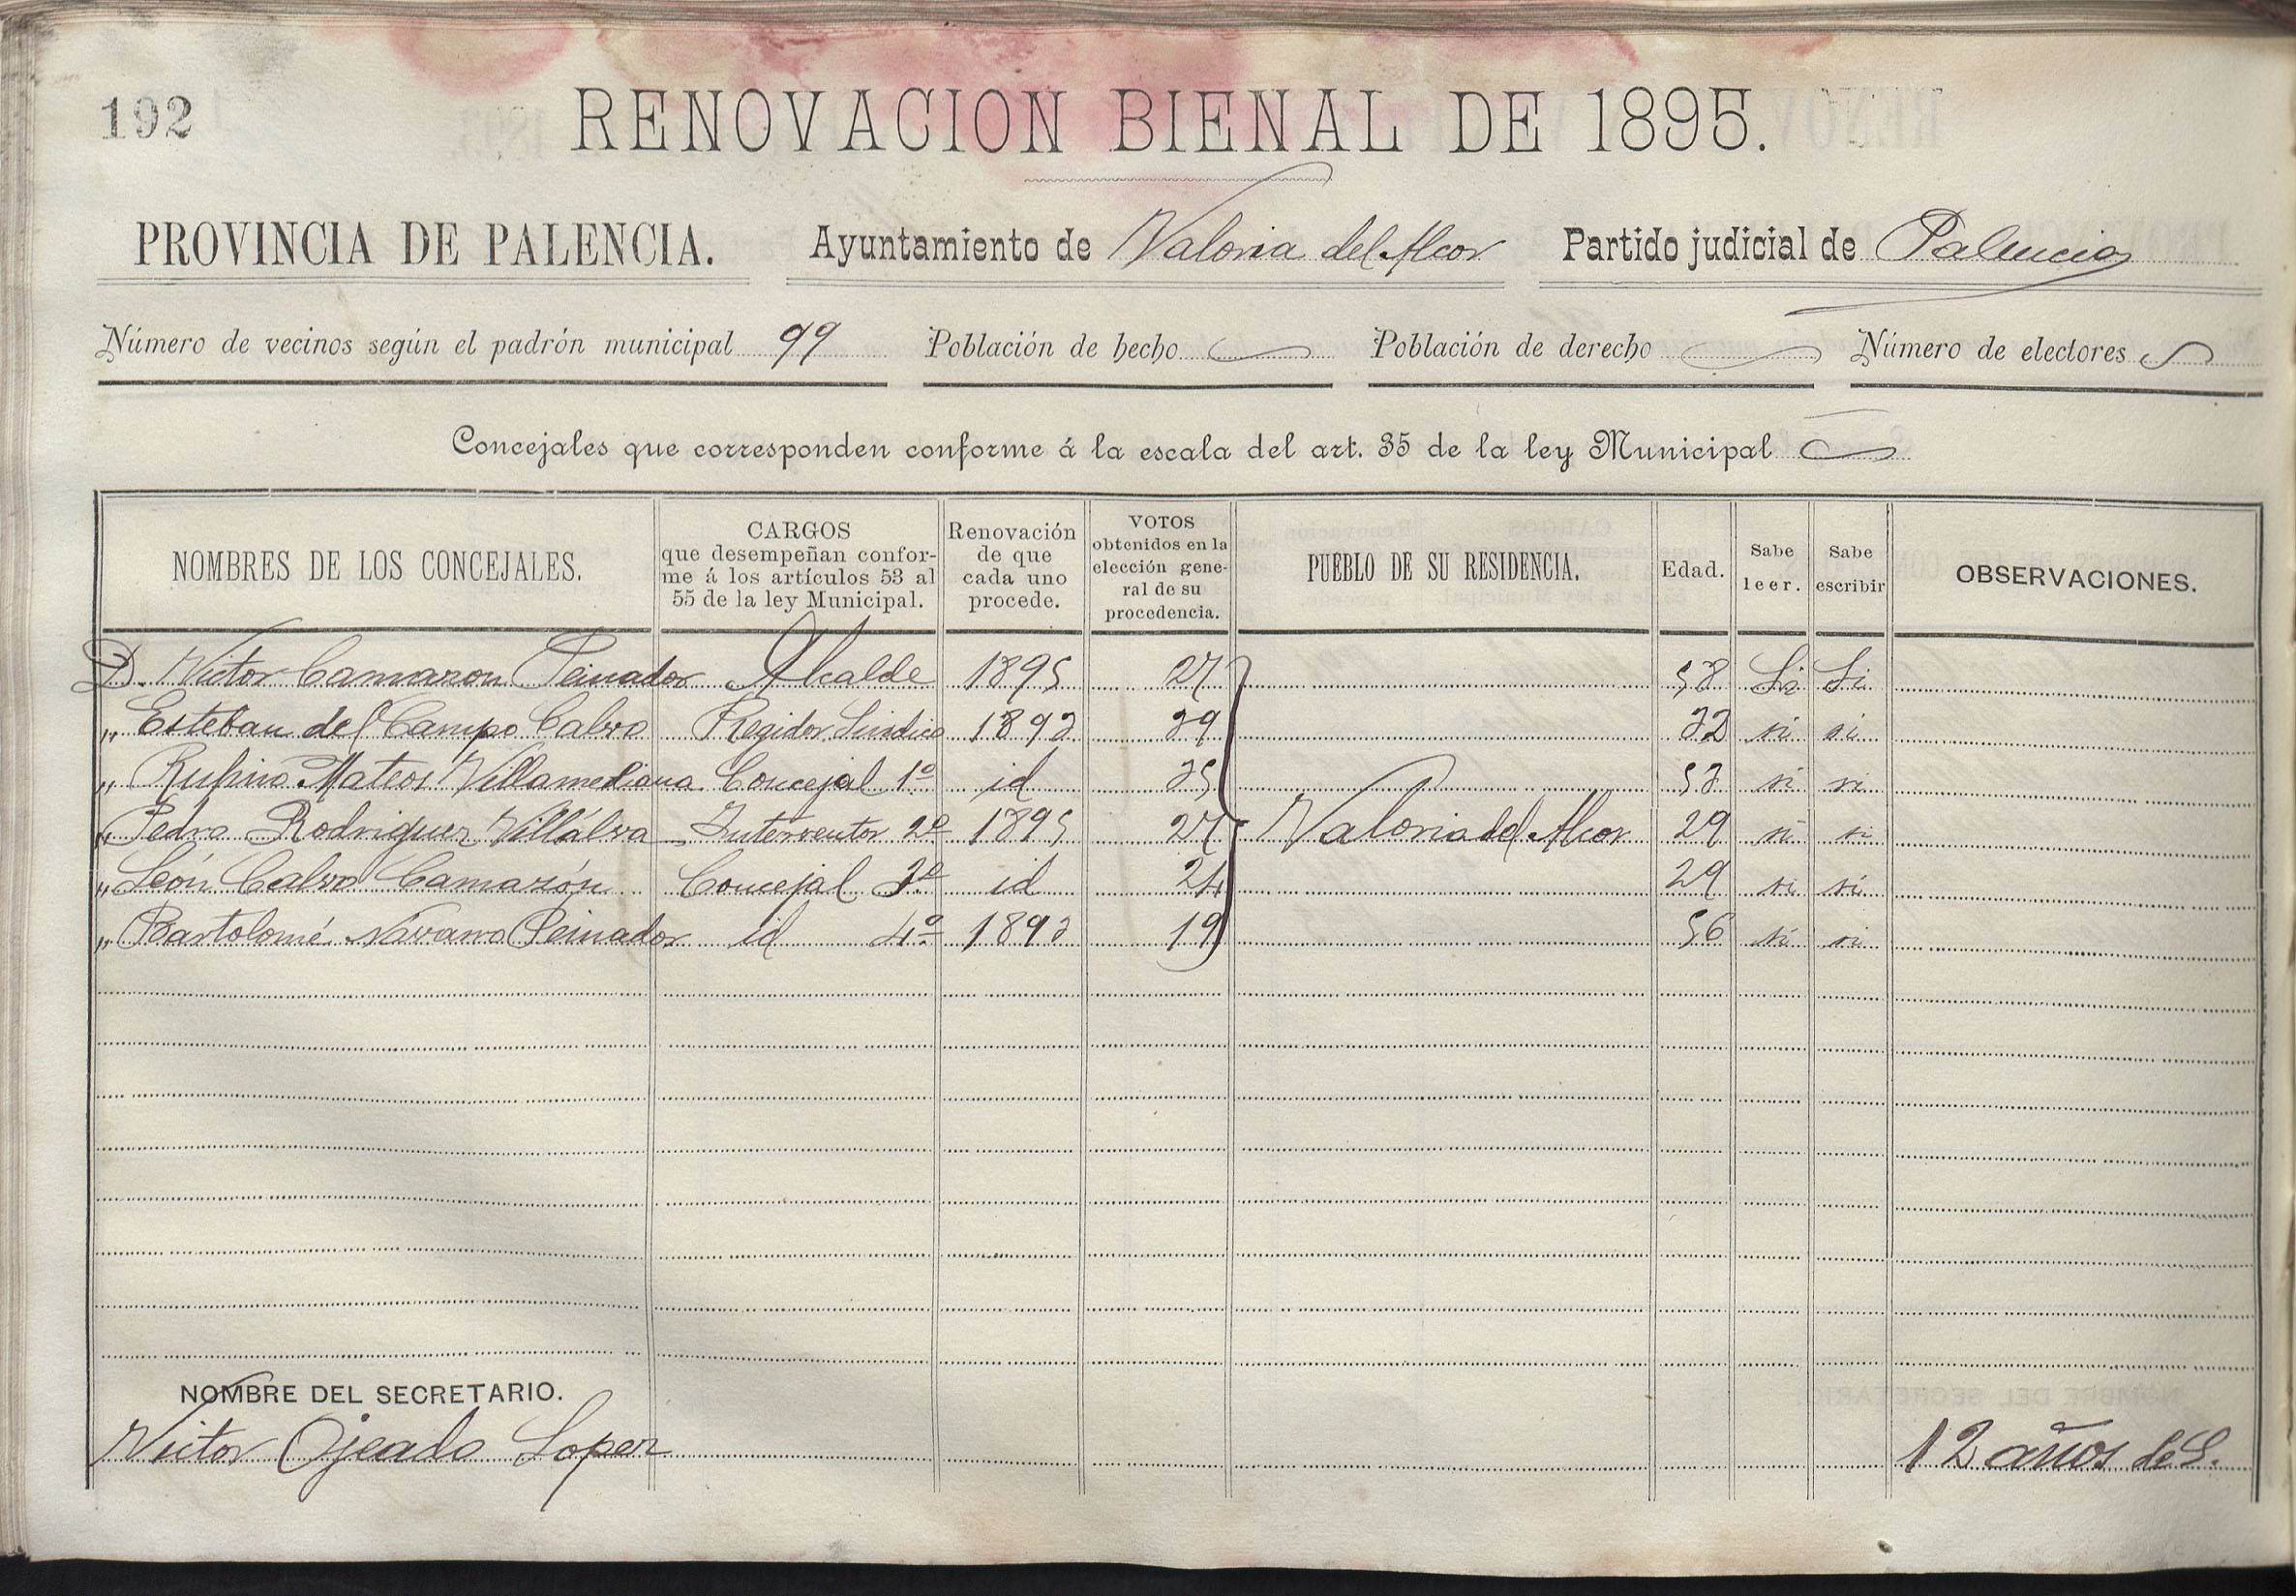 192
RENOVACION BIENAL DE 1895.
PROVINCIA DE PALENCIA. Ayuntamiento de Valoria del Alcor Partido judicial de Palencia
Número de vecinos según el padrón municipal 99 Población de hecho Población de derecho Número de electores
Concejales que corresponden conforme á la escala del art. 35 de la ley Municipal
NOMBRES DE LOS CONCEJALES. CARGOS que desempeñan confor-me á los artículos 53 al 55 de la ley Municipal. Renovación de que cada uno procede. VOTOS obtenidos en la elección gene-ral de su procedencia. PUEBLO DE SU RESIDENCIA. Edad. Sabe leer. Sabe escribir OBSERVACIONES.
D. Victor Camazon Peinador Alcalde 1895 27 58 Si Si
„ Esteban del Campo Calvo Regidor Sindico 1893 39 32 si si
„ Rufino Mateos Villamediana Concejal 1º id 35 53 si si
„ Pedro Rodriguez Villalva Interventor 2º 1895 27 Valoria del Alcor 29 si si
„ León Calvo Camazón Concejal 3º id 24 29 si si
„ Bartolomé Navarro Peinador id 4º 1893 19 56 si si
NOMBRE DEL SECRETARIO.
Victor Ojeado Lopez 12 años de S.